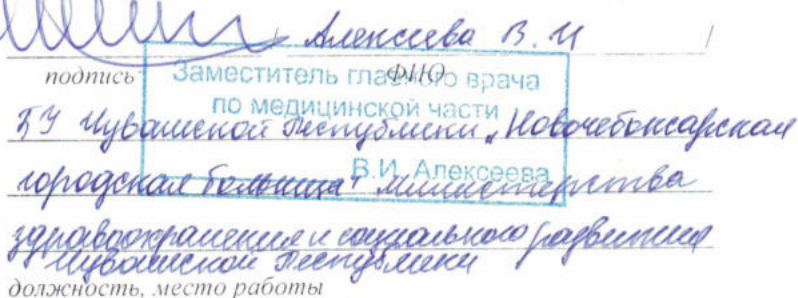 Алексеева В. И /
подпись ФИО
Заместитель главного врача
по медицинской части
БУ Чувашской Республики „Новочебоксарская
В.И. Алексеева
городская больница" Министерства
здравоохранения и социального развития
Чувашской Республики
должность, место работы